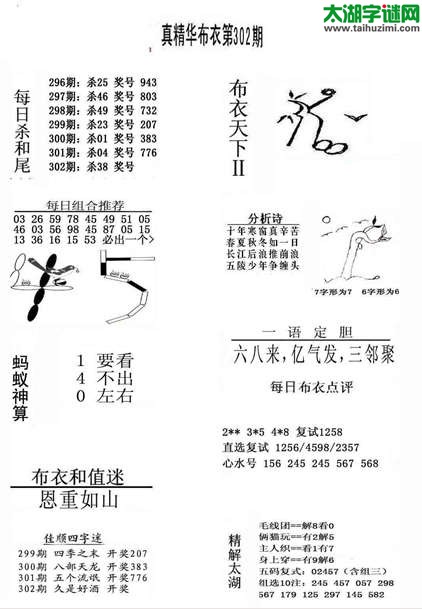 太湖字谜网
www.taihuzimi.com
真精华布衣第302期
每日杀和尾
296期：杀25 奖号 943
297期：杀46 奖号 803
298期：杀49 奖号 732
299期：杀23 奖号 207
300期：杀01 奖号 383
301期：杀04 奖号 776
302期：杀38 奖号
布衣天下II
每日组合推荐
03 26 59 78 45 49 51 05
46 03 56 98 45 87 05 15
13 36 16 15 53 必出一个>
分析诗
十年寒窗真辛苦
春夏秋冬如一日
长江后浪推前浪
五陵少年争缠头
7字形为7 6字形为6
蚂蚁神算
1 要看
4 不出
0 左右
一语定胆
六八来,亿气发,三邻聚
每日布衣点评
2** 3*5 4*8 复试1258
直选复试 1256/4598/2357
心水号 156 245 245 567 568
布衣和值迷
恩重如山
佳顺四字迷
299期 四季之末 开奖207
300期 八部天龙 开奖383
301期 五个流氓 开奖776
302期 久是好酒 开奖
精解太湖
毛线团==解8看0
俩猫玩==有2解5
主人织==看1有7
身上穿==有9解6
五码复式：02457（含组三）
组选10注：245 457 057 298
567 179 125 297 145 582